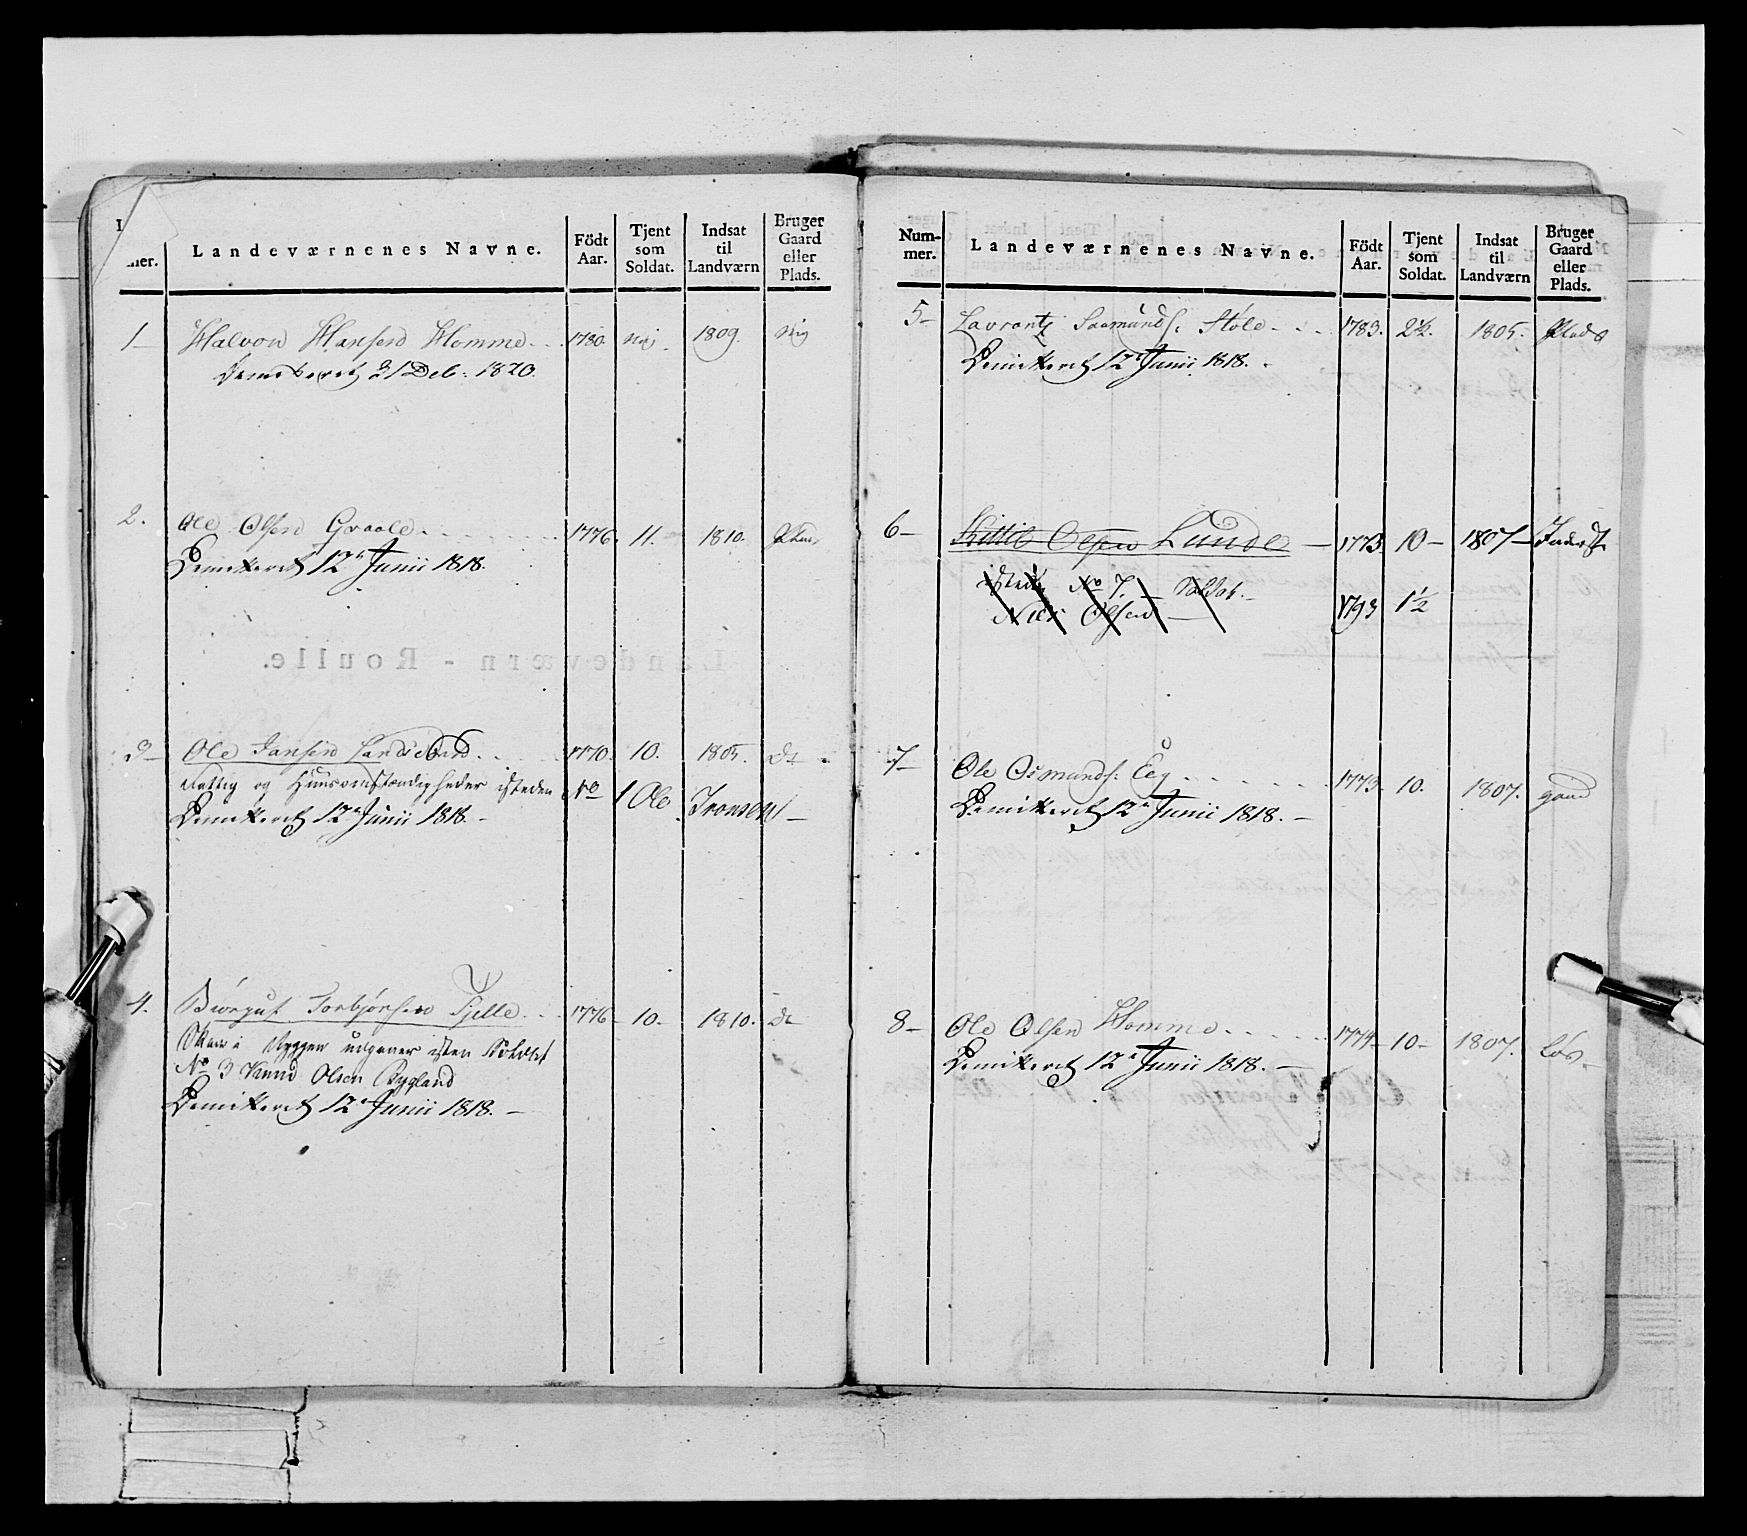 mer. Landeværnenes Navne. Födt Aar. Tjent som Soldat. Indsat til Landværn Bruger Gaard eller Plads.
1 Halvor Hansen Homme 1780. Nei 1809. Nei
Demitteret 31 Deb: 1820.
2. Ole Olsen Graale 1776. 11. 1810.
Demitteret 12te Junii 1818.
Landeværn-Roulle.
3 Ole Jansen 1770. 10. 1805. Dt
og Huusomstændigheder isteden No 1 Ole Tronsen
Demitteret 12te Junii 1818.
4. Biørguf Torbjørnsen Tjelle 1776 10. 1810. Dt
Ryggen udgaaer isten Soldat
No 3 Knud Olsen Bygland
Demitteret 12te Junii 1818.
Nummer. Landeværnenes Navne. Födt Aar. Tjent som Soldat. Indsat til Landværn Bruger Gaard eller Plads.
5 Lavrantz Saamunds: Støle 1783. 2½. 1805. Plads
Demitteret 12te Junii 1818.
6 Kittil Olsen Lunde 1773 10 1807
isteden No 7. Soldat
Olsen 1793 1½
7 Ole Osmunds: Eeg 1773. 10. 1807. gaard
Demitteret 12te Junii 1818.
8 Ole Olsen Homme 1774 10 1807. løs
Demitteret 12te Junii 1818.